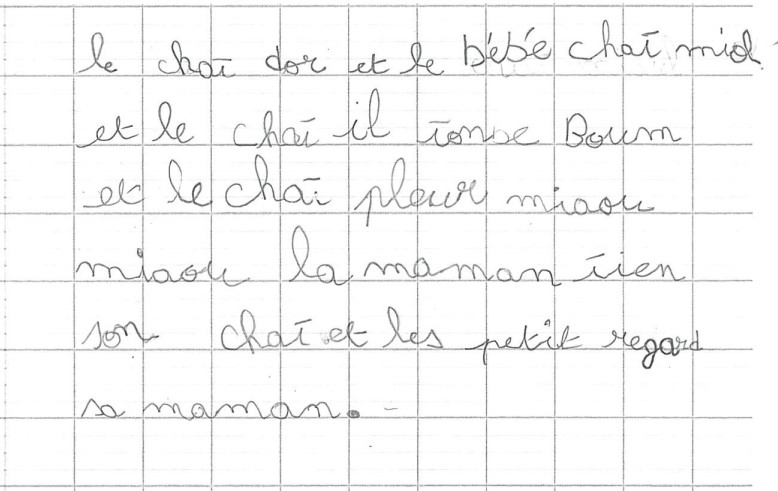 le chat dor et le bébé chat miol
et le chat il tonse Boum
et le chat pleur miaou
miaou la maman tien
son chat et les petit regard
sa maman.